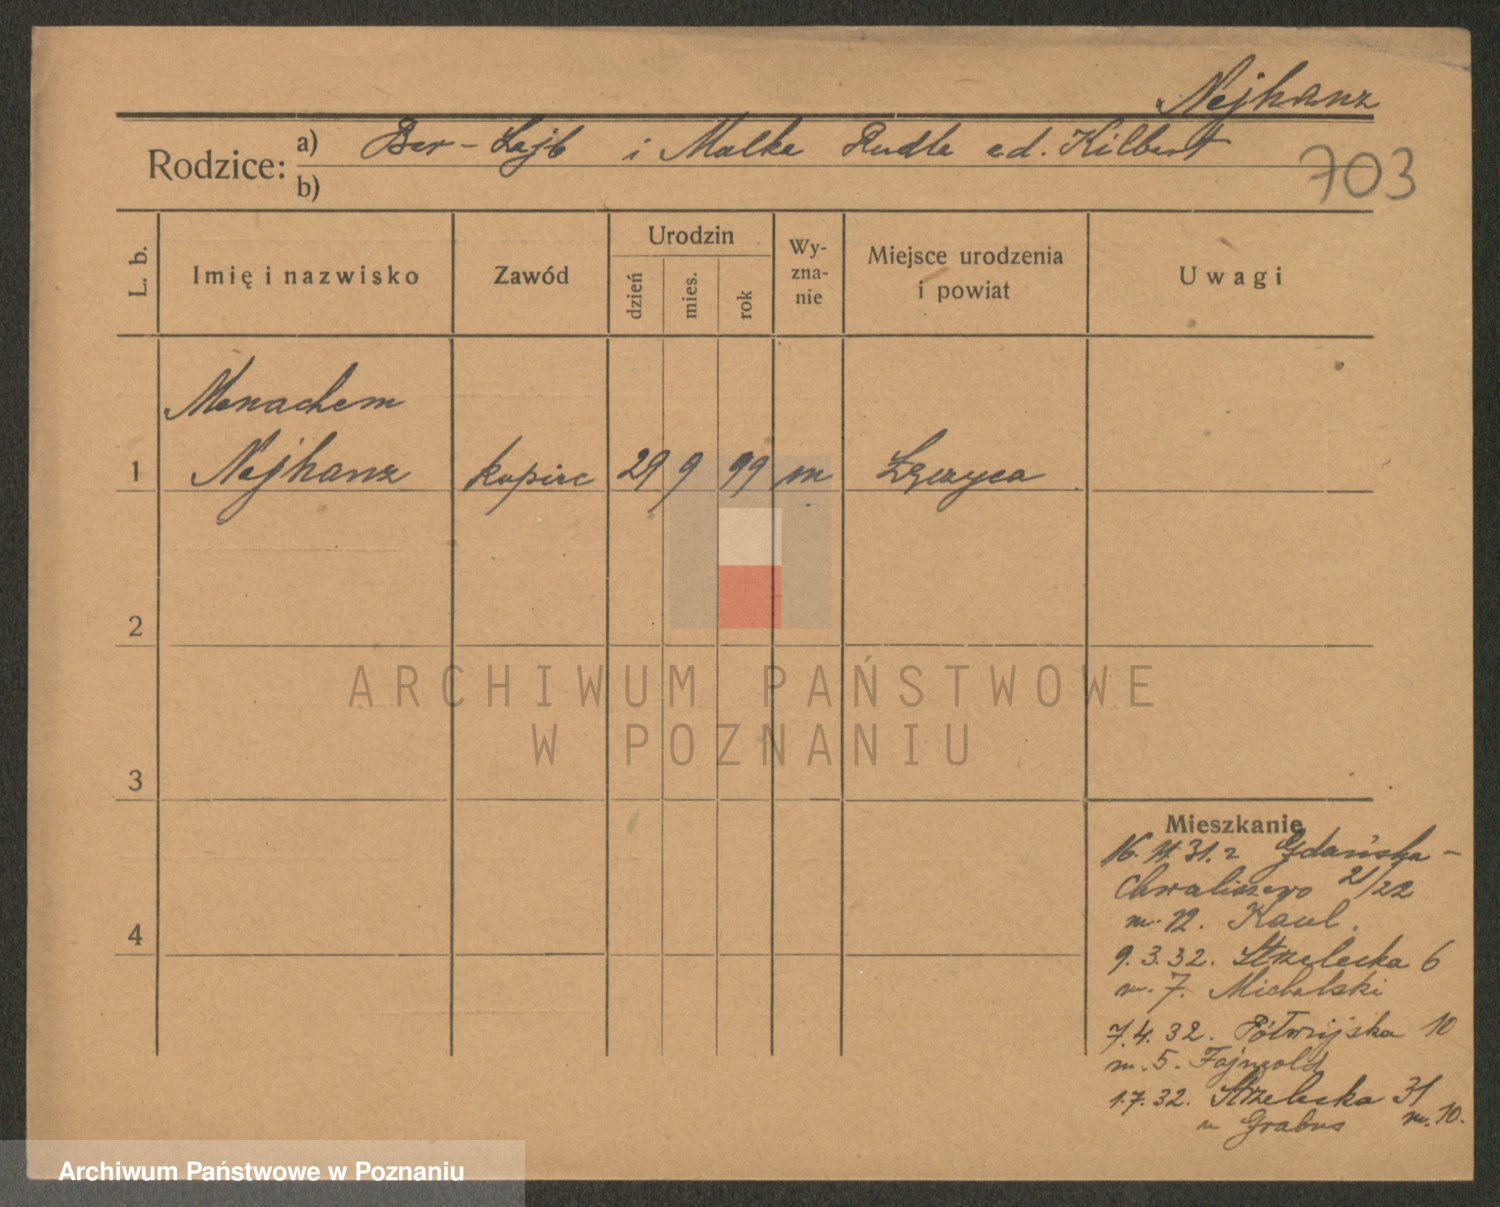 Nejhanz
Rodzice: a) Ber-Lajb i Malka Rudla cd. Kilbert
b)
703
L. b.
Imię i nazwisko
Zawód
Urodzin
dzień
mies.
rok
Wy-
zna-
nie
Miejsce urodzenia
i powiat
Uwagi
Menachem
1 Nejhanz kupiec 29 9 99 m Łęczyca
2
3
4
ARCHIWUM PAŃSTWOWE
W POZNANIU
Mieszkanie
16. 11. 31. z Gdańska -
Chwaliszewo 21/22
m. 12. Kaul.
9. 3. 32. Strzelecka 6
m. 7. Michalski
7. 4. 32. Półwiejska 10
m. 5. Fajngold
1. 7. 32. Strzelecka 31
u Grabus m. 10.
Archiwum Państwowe w Poznaniu